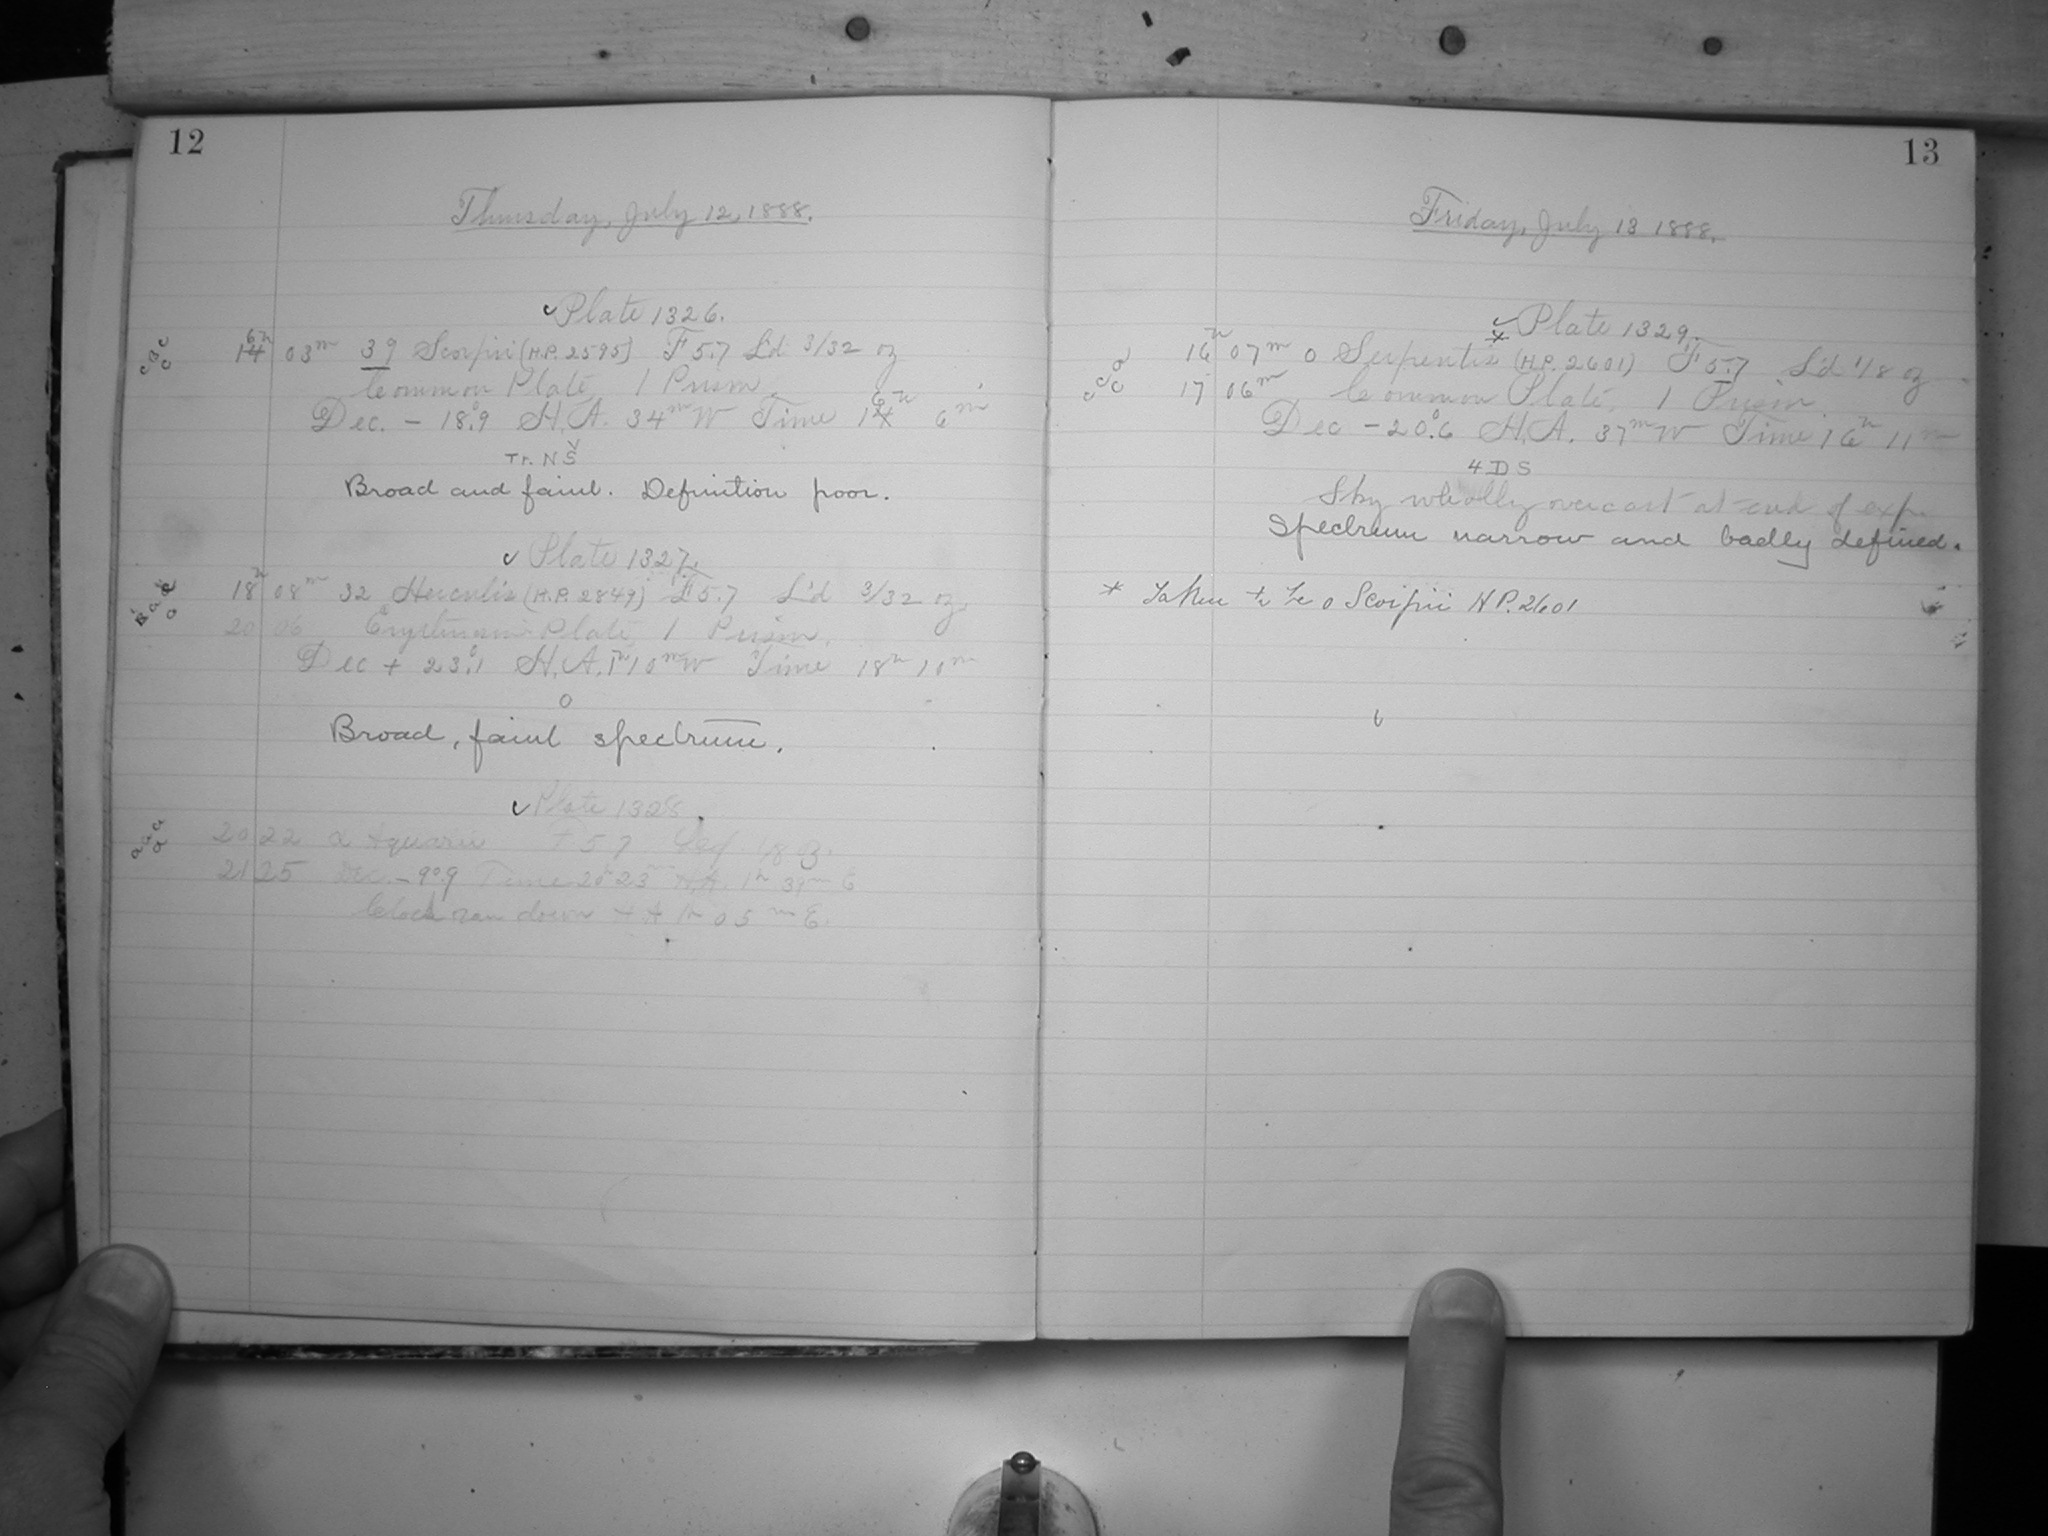 12
Thursday, July 12, 1888.
Plate 1326.
16h 03m 39 Scorpii (H.P. 2595) F 5.7 L'd 3/32 oz
Common Plate, 1 Prism.
Dec. - 18°.9 H.A. 34m W Time 16h 6m
Tr. N S
Broad and faint. Definition poor.
Plate 1327.
18h 08m 32 Herculis (H.P. 2849) F 5.7 L'd 3/32 oz.
20 06 Plate, 1 Prism.
Dec + 23°.1 H.A. 1h 10m W Time 18h 10m
0
Broad, faint spectrum.
Plate 1328.
20 22 α Aquarii 5 7 1/8
21 25 Dec. -9°.9 Time 20h 23m H.A. 1h 39m E
Clock ran down H A 1h 05m E.
13
Friday, July 13 1888.
Plate 1329.
16h 07m o Serpentis * (H.P. 2601) F 5.7 L'd 1/8 oz
17 06m Common Plate, 1 Prism.
Dec - 20°.6 H.A. 37m W Time 16h 11m
4 D S
Sky wholly overcast at end of exp.
Spectrum narrow and badly defined.
* Taken to be o Scorpii H P. 2601